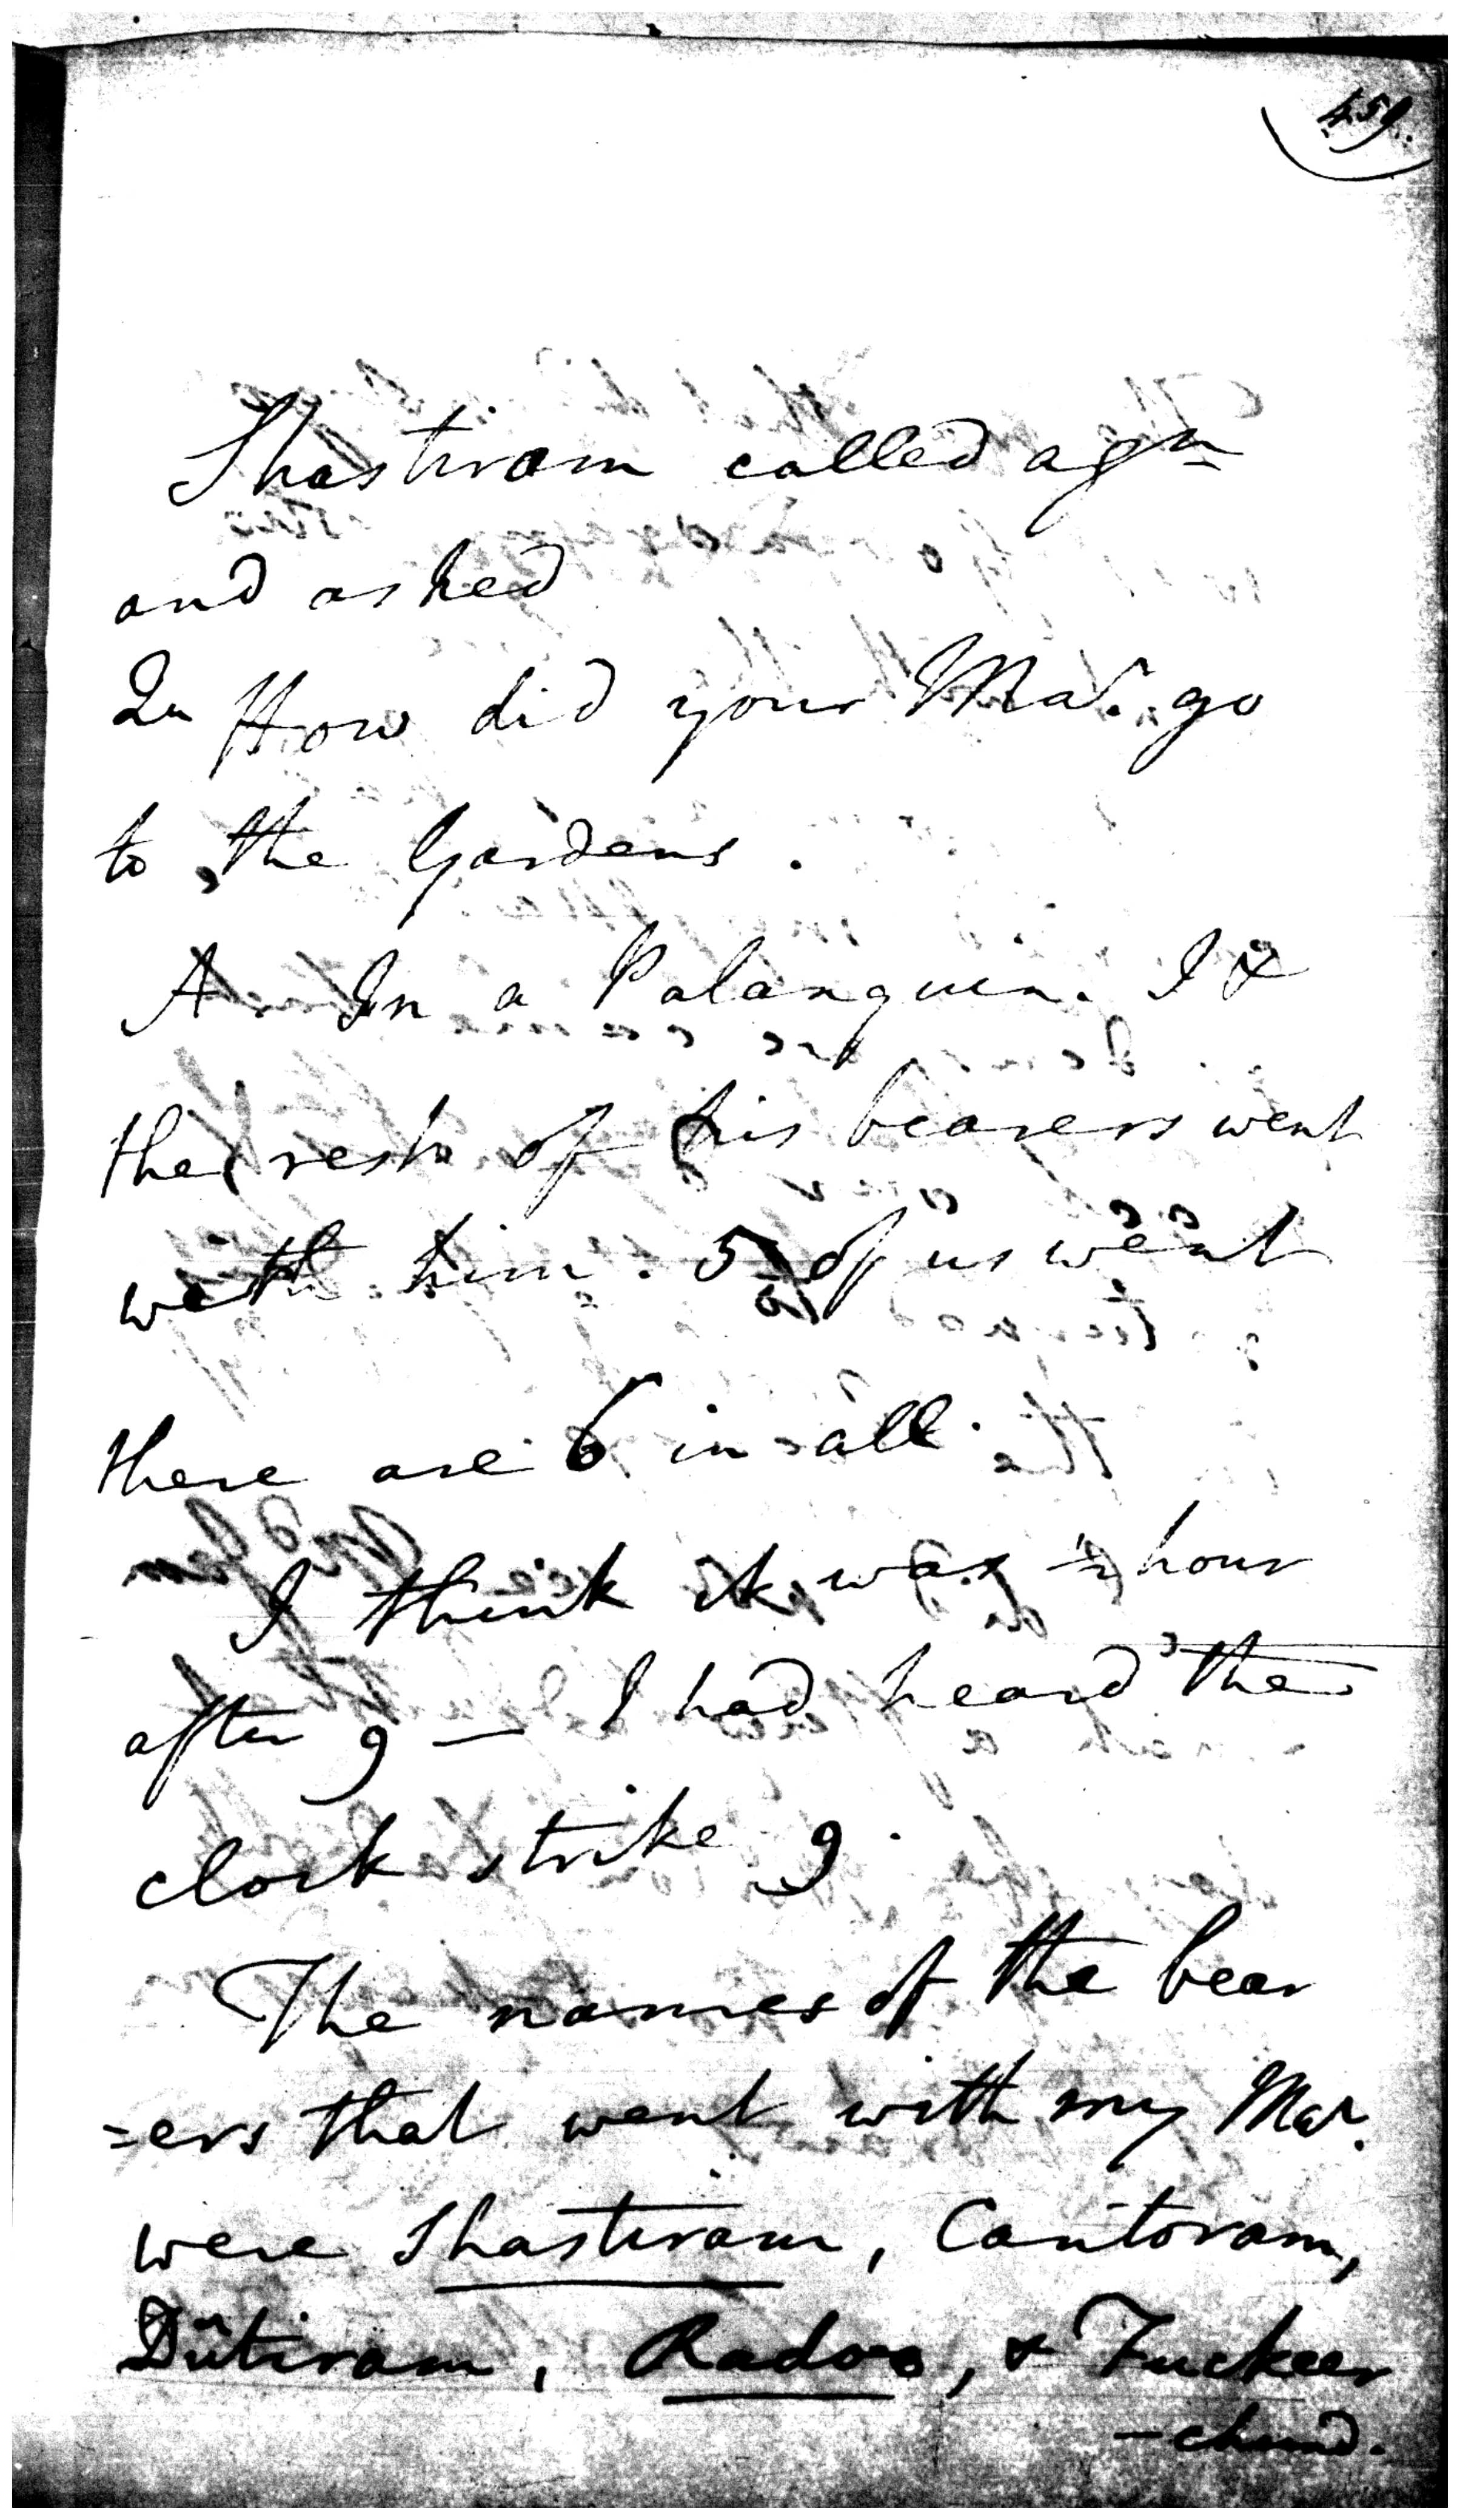 459.
Shastiram called agn
and asked
Qu How did your Mar. go
to the Gardens.
A In a Palanquin. I &
the rest of his bearers went
with him. 5 of us went
there are 6 in all.
I think it was ½ hour
after 9 — I had heard the
clock strike 9.
The names of the bear
=ers that went with my Mar.
were Shastiram, Cantoram,
Dûtiram, Radoo, & Fuckeer
-chund.